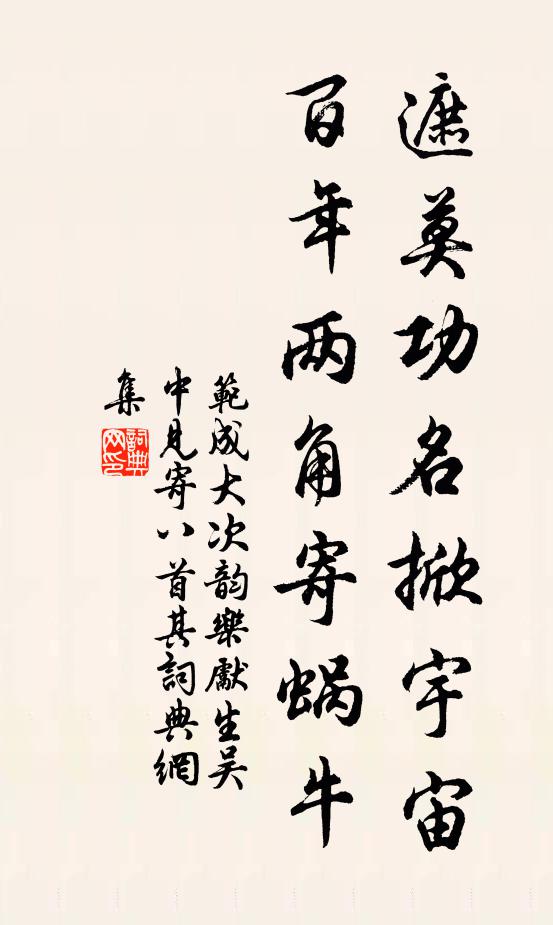 遮莫功名掀宇宙
百年两角寄蜗牛
範成大次韵樂獻生吴
中見寄八首其詞典網
集
詞典
网印